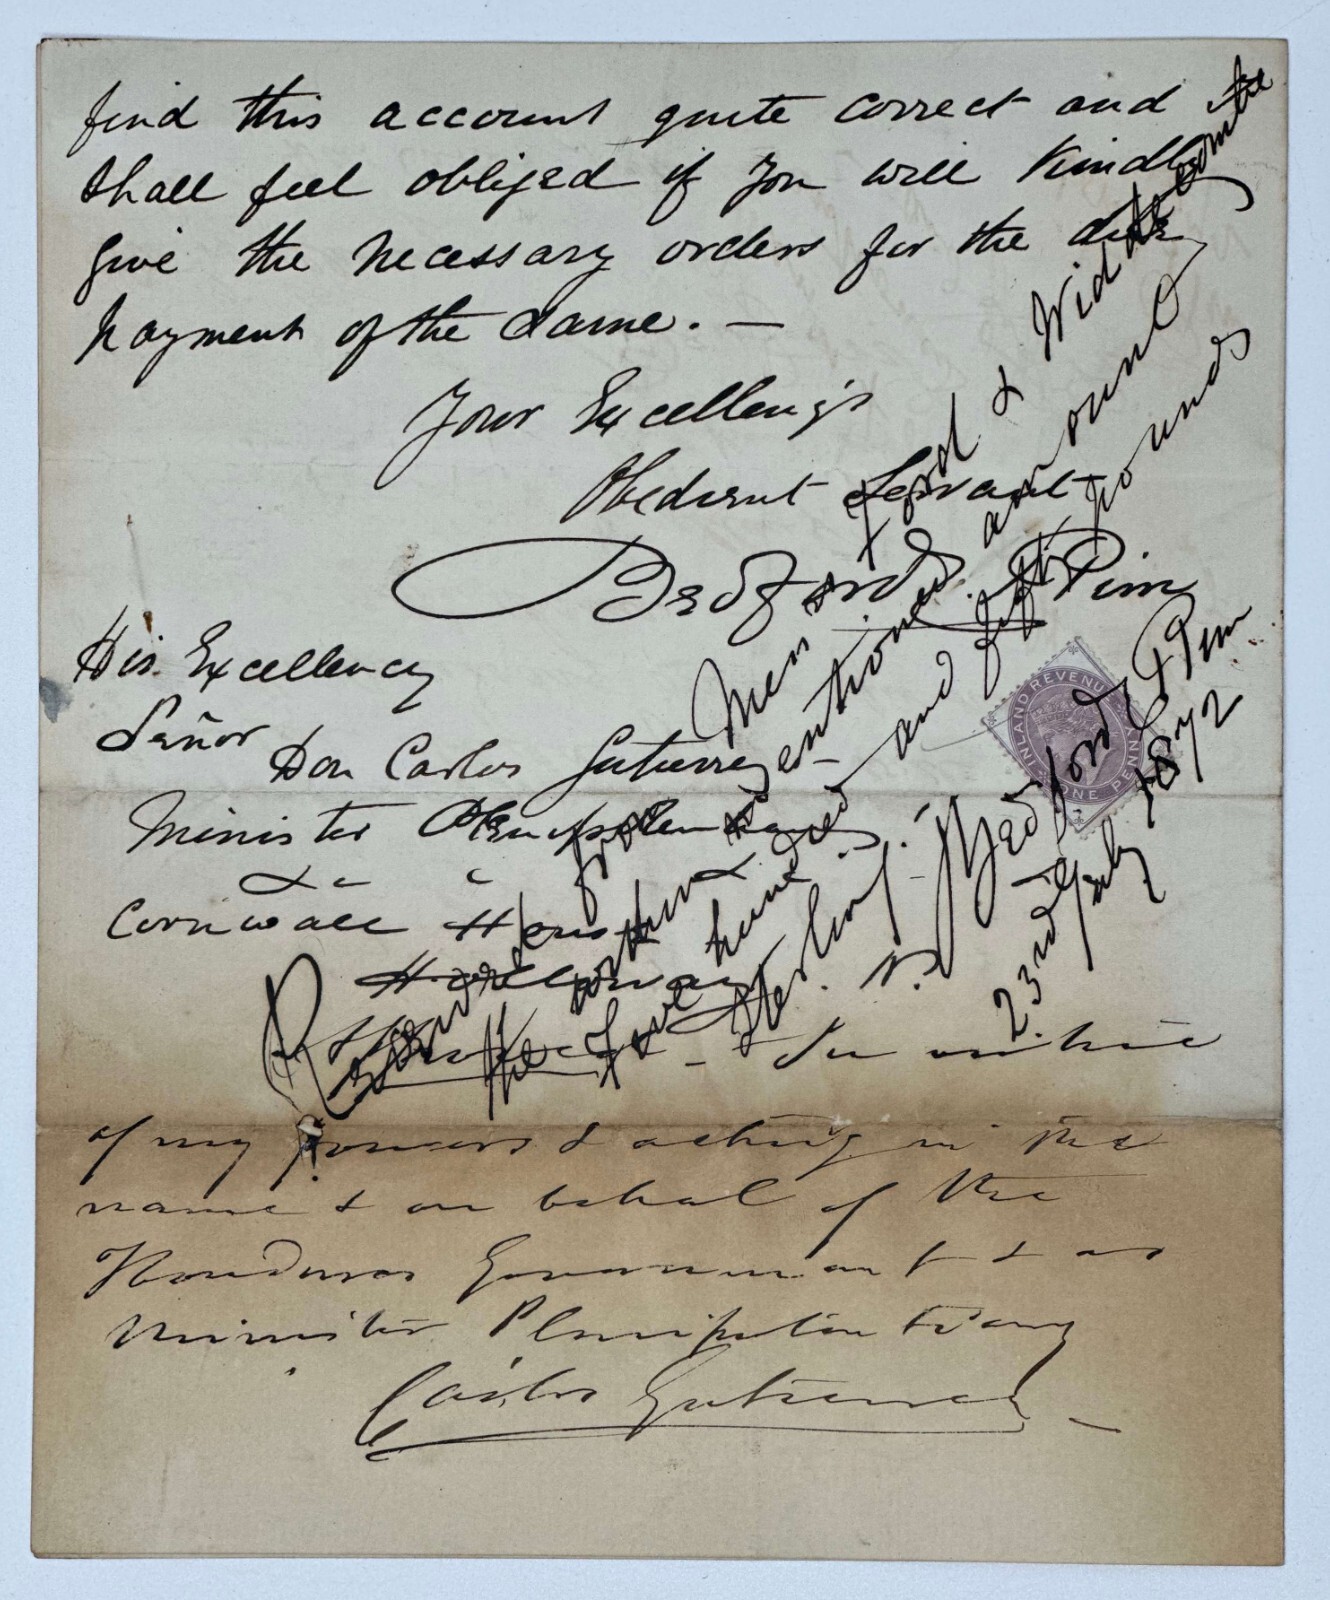 find this account quite correct and
shall feel obliged if you will Kindly
give the necessary orders for the due
payment of the same. —
Your Excellency's
Obedient Servant
Bedford Pim
His Excellency
Señor Don Carlos Gutierrez
Minister Plenipotentiary
&c &c
Cornwall House
Holloway
In virtue
of my powers & acting in the
name & on behalf of the
Honduras Government & as
Minister Plenipotentiary
Carlos Gutierrez
Received from Messrs Ford &
the within mentioned amount
five hundred and fifty pounds
Sterling.
Bedford Pim
23rd July 1872
INLAND REVENUE
ONE PENNY